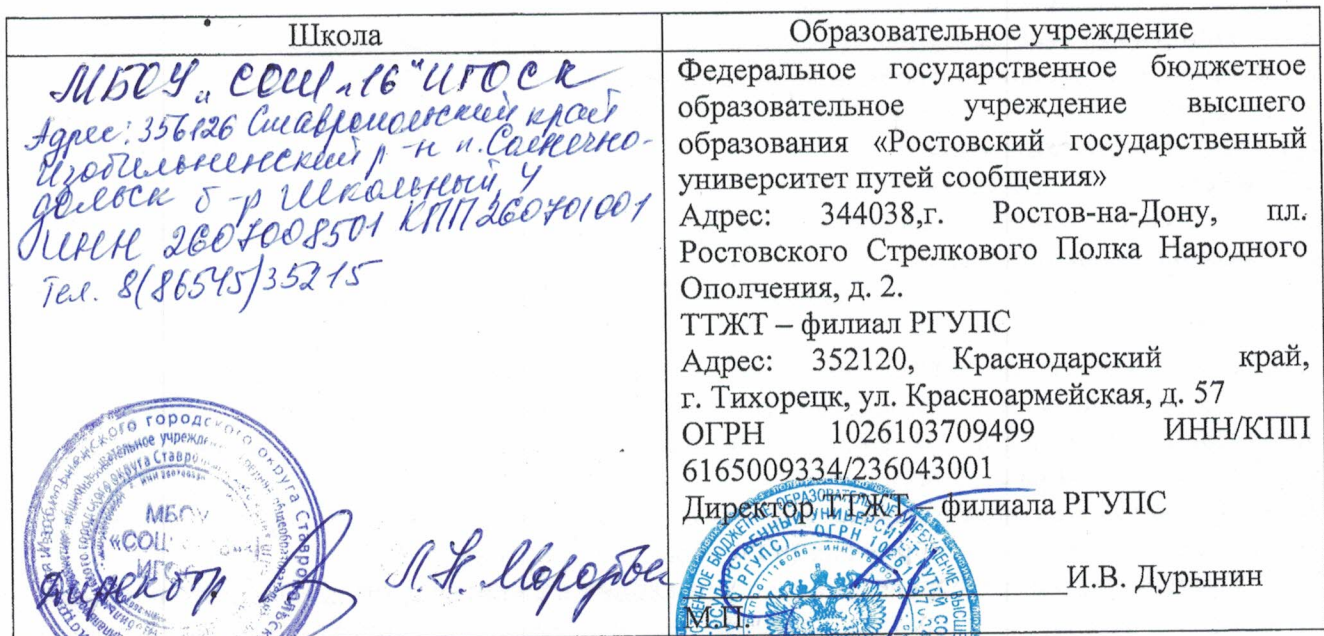 Школа
МБОУ „СОШ №16" ИГОСК
Адрес: 356126 Ставропольский край
Изобильненский р-н п. Солнечно-
дольск б-р Школьный, 4
ИНН 2607008501 КПП 260701001
Тел. 8(86545)35215
МБОУ
ИГО
Директор Л.Н.
Образовательное учреждение
Федеральное государственное бюджетное
образовательное учреждение высшего
образования «Ростовский государственный
университет путей сообщения»
Адрес: 344038,г. Ростов-на-Дону, пл.
Ростовского Стрелкового Полка Народного
Ополчения, д. 2.
ТТЖТ – филиал РГУПС
Адрес: 352120, Краснодарский край,
г. Тихорецк, ул. Красноармейская, д. 57
ОГРН 1026103709499 ИНН/КПП
6165009334/236043001
Директор ТТЖТ – филиала РГУПС
И.В. Дурынин
М.П.